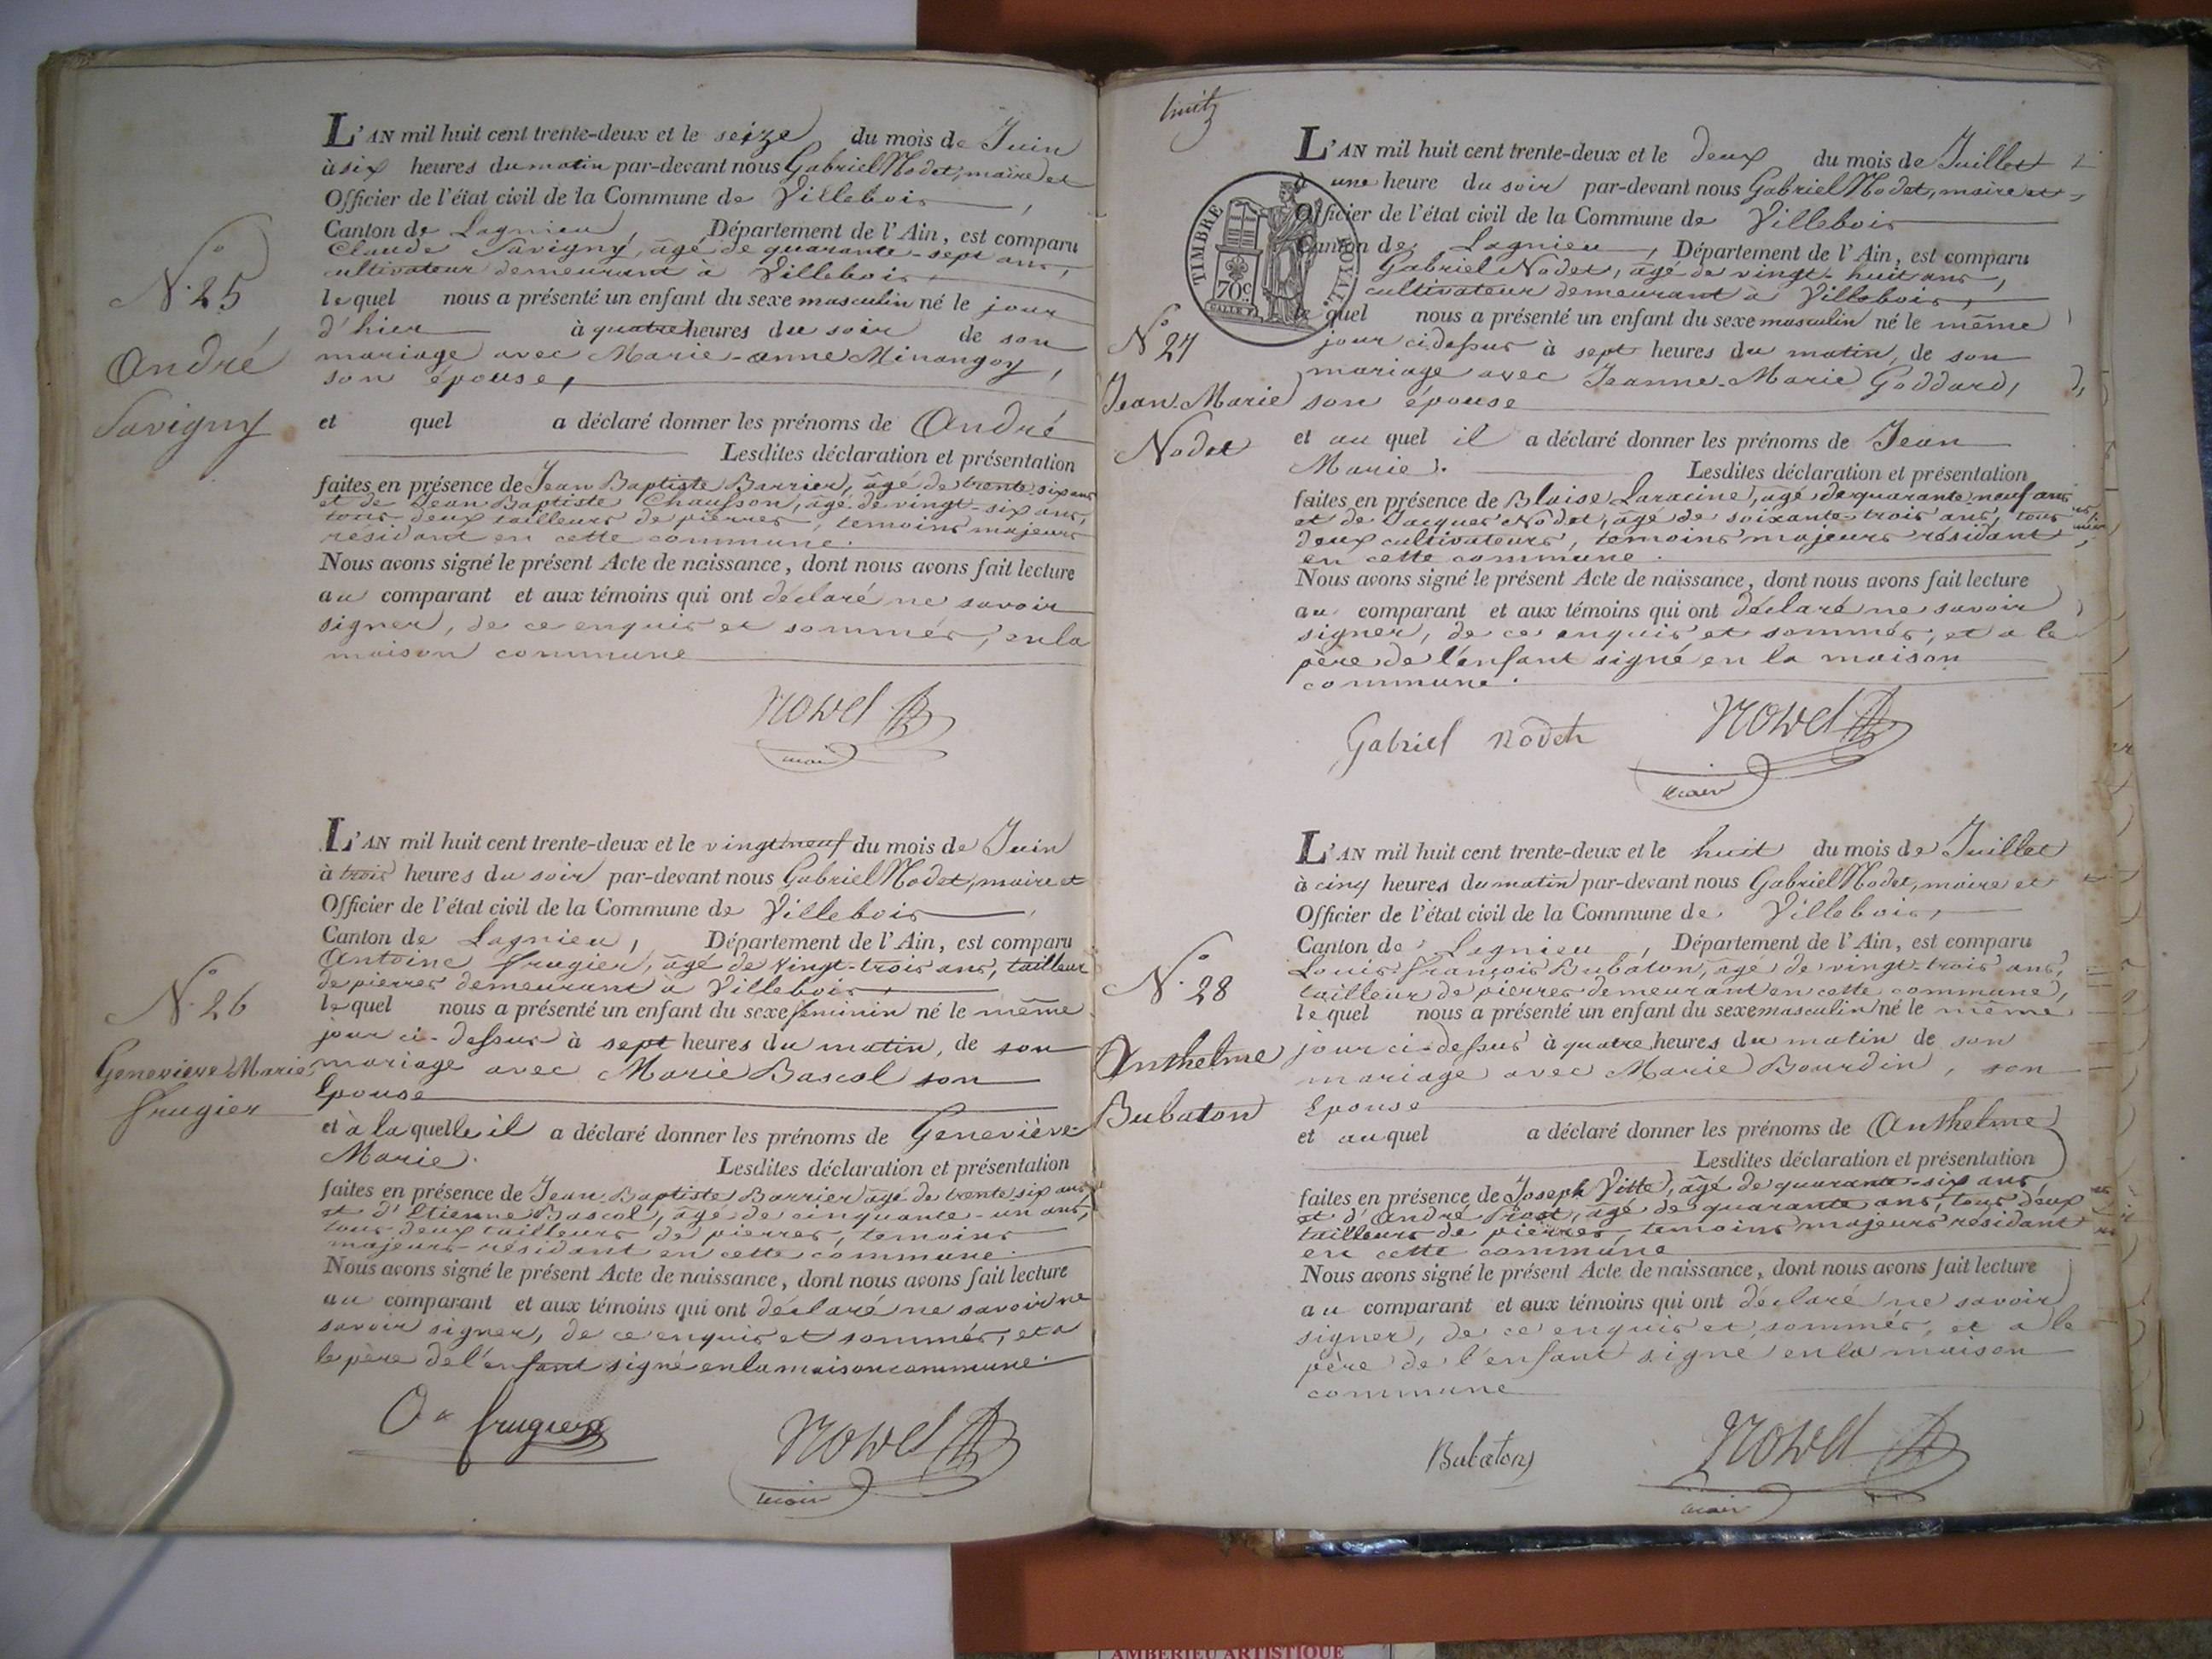 L'AN mil huit cent trente-deux et le seize du mois de Juin
à six heures du matin par-devant nous Gabriel Nodet, maire et
Officier de l'état civil de la Commune de Villebois,
Canton de Lagnieu, Département de l'Ain, est comparu
Claude Savigny, âgé de quarante-sept ans,
cultivateur demeurant à Villebois,
lequel nous a présenté un enfant du sexe masculin né le jour
d'hier à quatre heures du soir de son
mariage avec Marie-Anne Minangoy,
son épouse,
et quel a déclaré donner les prénoms de André
Lesdites déclaration et présentation
faites en présence de Jean Baptiste Barrier, âgé de trente-six ans
et de Jean Baptiste Chausson, âgé de vingt-six ans,
tous deux tailleurs de pierres, temoins majeurs
résidant en cette commune.
Nous avons signé le présent Acte de naissance, dont nous avons fait lecture
au comparant et aux témoins qui ont déclaré ne savoir
signer, de ce enquis et sommés, en la
maison commune
N.º 25
André
Savigny
Nodet
maire
L'AN mil huit cent trente-deux et le vingt neuf du mois de Juin
à trois heures du soir par-devant nous Gabriel Nodet, maire et
Officier de l'état civil de la Commune de Villebois,
Canton de Lagnieu, Département de l'Ain, est comparu
Antoine frugier, âgé de vingt-trois ans, tailleur
de pierres demeurant à Villebois,
lequel nous a présenté un enfant du sexe féminin né le même
jour ci-dessus à sept heures du matin, de son
mariage avec Marie Bascol son
Epouse
et à laquelle il a déclaré donner les prénoms de Geneviève-
Marie. Lesdites déclaration et présentation
faites en présence de Jean Baptiste Barrier âgé de trente-six ans
et d'Etienne Bascol, âgé de cinquante-un ans,
tous deux tailleurs de pierres, temoins
majeurs résidant en cette commune.
Nous avons signé le présent Acte de naissance, dont nous avons fait lecture
au comparant et aux témoins qui ont déclaré ne savoir ne
savoir signer, de ce enquis et sommés, et a
le père de l'enfant signé en la maison commune.
N.º 26
Geneviève Marie
frugier
frugier
Nodet
maire
huit
TIMBRE ROYAL
70c
L'AN mil huit cent trente-deux et le deux du mois de Juillet
à une heure du soir par-devant nous Gabriel Nodet, maire et
Officier de l'état civil de la Commune de Villebois
Canton de Lagnieu, Département de l'Ain, est comparu
Gabriel Nodet, âgé de vingt-huit ans,
cultivateur demeurant à Villebois,
lequel nous a présenté un enfant du sexe masculin né le même
jour ci dessus à sept heures du matin, de son
mariage avec Jeanne-Marie Goddard,
son épouse
et au quel il a déclaré donner les prénoms de Jean
Marie. Lesdites déclaration et présentation
faites en présence de Blaise Laracine, âgé de quarante neuf ans
et de Jacques Nodet, âgé de soixante-trois ans, tous
deux cultivateurs, temoins majeurs résidant
en cette commune.
Nous avons signé le présent Acte de naissance, dont nous avons fait lecture
au comparant et aux témoins qui ont déclaré ne savoir
signer, de ce enquis et sommés, et a le
père de l'enfant signé en la maison
commune.
N.º 27
Jean-Marie
Nodet
Gabriel nodet
Nodet
maire
L'AN mil huit cent trente-deux et le huit du mois de Juillet
à cinq heures du matin par-devant nous Gabriel Nodet, maire et
Officier de l'état civil de la Commune de Villebois,
Canton de Lagnieu, Département de l'Ain, est comparu
Louis François Bubaton, âgé de vingt-trois ans,
tailleur de pierres demeurant en cette commune,
lequel nous a présenté un enfant du sexe masculin né le même
jour ci-dessus à quatre heures du matin de son
mariage avec Marie Bourdin, son
Epouse
et auquel a déclaré donner les prénoms de Anthelme
Lesdites déclaration et présentation
faites en présence de Joseph Vitte, âgé de quarante-six ans,
et d'André Priost, âgé de quarante ans, tous deux
tailleurs de pierres, temoins majeurs résidant
en cette commune
Nous avons signé le présent Acte de naissance, dont nous avons fait lecture
au comparant et aux témoins qui ont déclaré ne savoir
signer, de ce enquis et sommés, et a le
père de l'enfant signé en la maison
commune
N.º 28
Anthelme
Bubaton
Bubaton
Nodet
maire
AMBERIEU ARTISTIQUE